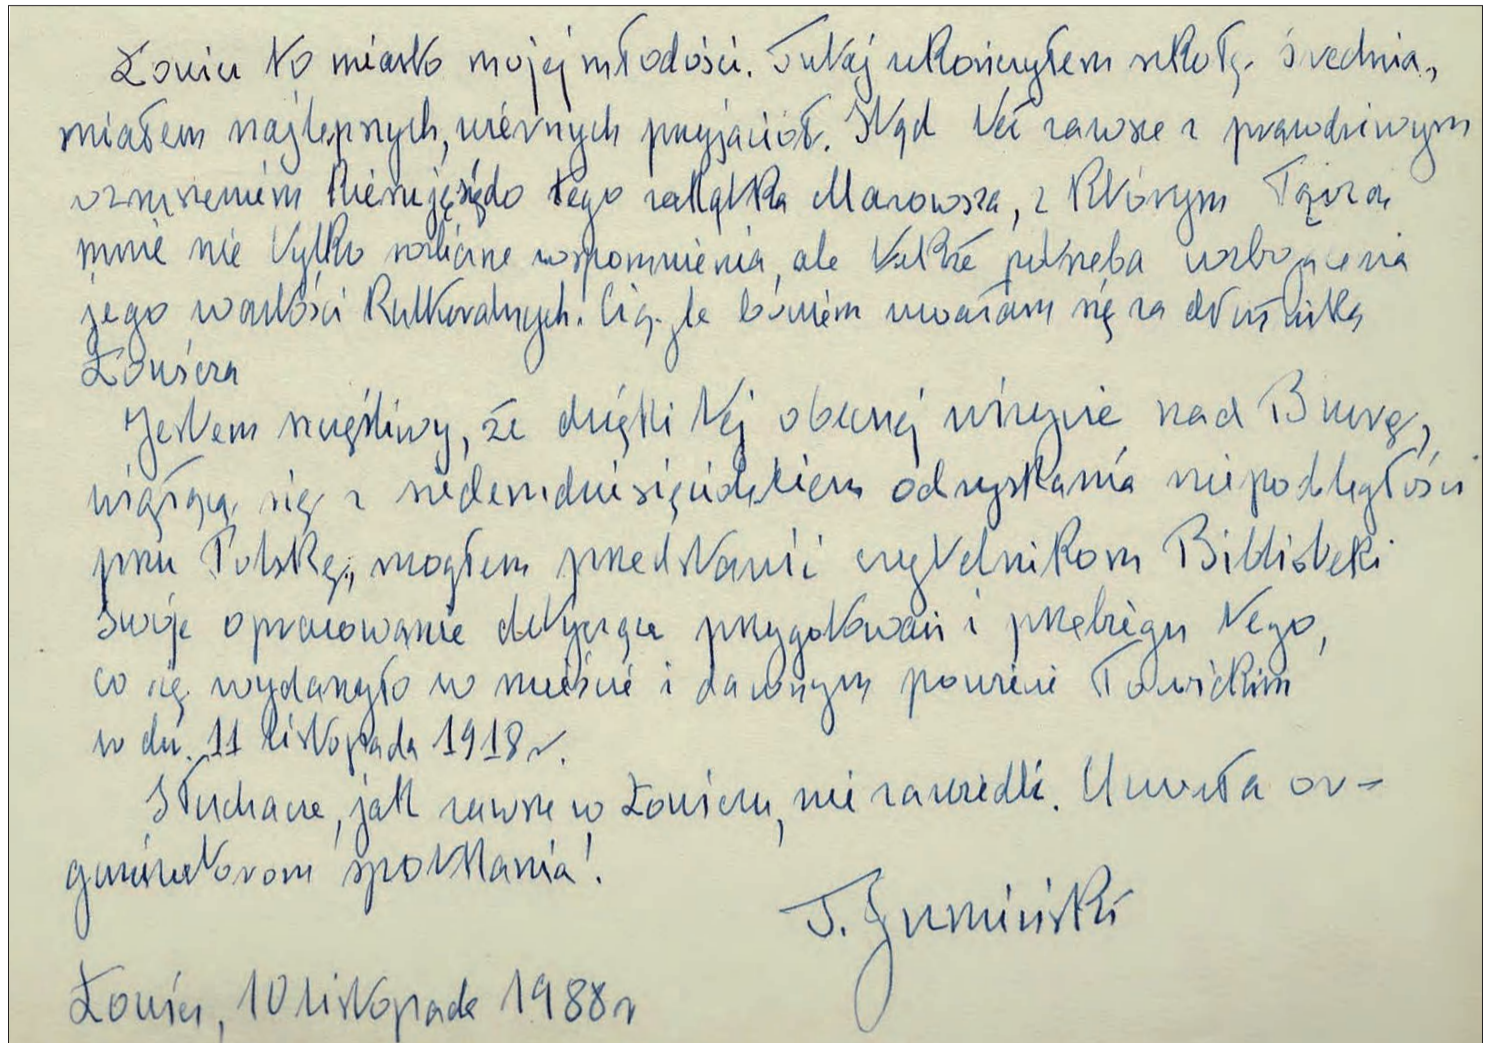 Łowicz to miasto mojej młodości. Tutaj ukończyłem szkołę średnią,
miałem najlepszych, wiernych przyjaciół. Stąd też zawsze z prawdziwym
wzruszeniem kieruję się do tego zakątka Mazowsza, z którym łączą
mnie nie tylko rozliczne wspomnienia, ale także potrzeba wzbogacenia
jego wartości kulturalnych. Ciągle bowiem uważam się za dłużnika
Łowicza
Jestem szczęśliwy, że dzięki tej obecnej wizycie nad Bzurą,
wiążącą się z siedemdziesięcioleciem odzyskania niepodległości
przez Polskę, mogłem przedstawić czytelnikom Biblioteki
swoje opracowanie dotyczące przygotowań i przebiegu tego,
co się wydarzyło w mieście i dawnym powiecie łowickim
w dn. 11 listopada 1918 r.
Słuchacze, jak zawsze w Łowiczu, nie zawiedli. Chwała or-
ganizatorom spotkania!
T. Gumiński
Łowicz, 10 listopada 1988 r